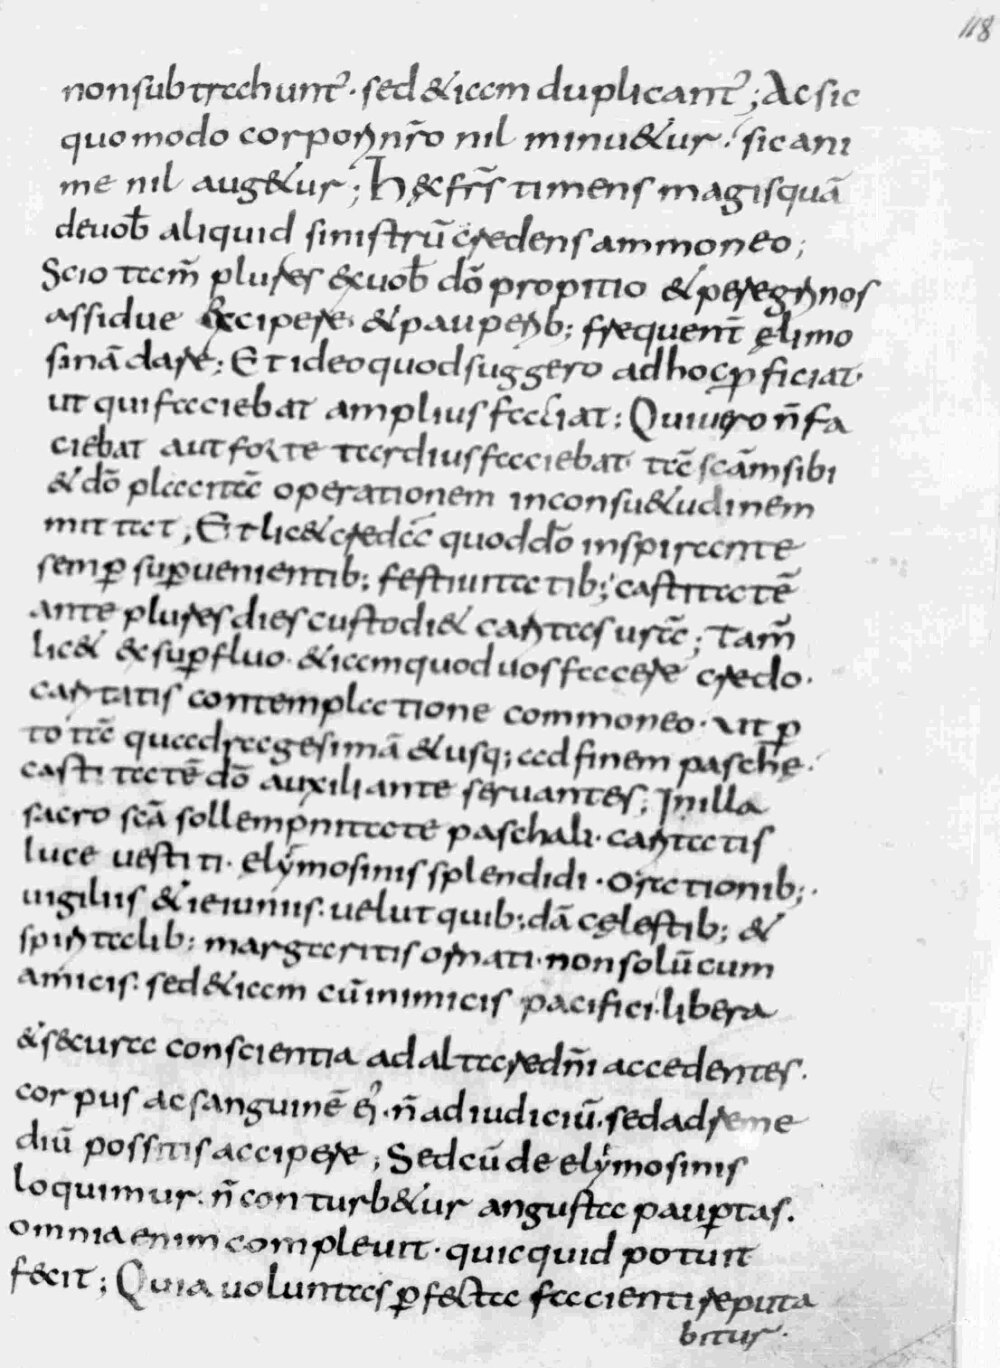 118
non subtrahunt᷑· sed &iam duplicant᷑; Ac sic
quomodo corpori nr̄o nil minu&ur· sic ani
me nil aug&ur; Hęc frs̄ timens magis quā
de uob̄ aliquid sinistrū credens ammoneo;
Scio tam̄ plures ex uob̄ dō propitio & peregrinos
assidue excipere· & pauperib; frequent̄ ęlimo
sinā dare; Et ideo quod suggero ad hoc ꝓficiat·
ut qui faciebat amplius faciat; Qui uero n̄ fa
ciebat aut forte tardius faciebat· tā scām sibi
& dō placitā operationem in consu&udinem
mittat; Et lic& credā quod dō inspirante
semp̄ sup̄uenientib; festiuitatib; castitatē
ante plures dies custodi& caritas urā; Tam̄
lic& ex sup̄fluo· &iam quod uos facere credo·
caritatis contemplatione commoneo· Ut p̄
totā quadragesimā & usq; ad finem paschę·
castitatē dō auxiliante seruantes; In illa
sacro scā sollempnitate paschali· caritatis
luce uestiti· elymosinis splendidi· orationib;·
uigiliis & ieiuniis· uelut quib;dā cęlestib; &
spiritalib; margaritis ornati· non solū cum
amicis· sed &iam cū inimicis pacifici· libera
& secura conscientia ad altare dn̄i accedentes·
corpus ac sanguinē ei᷑· n̄ ad iudiciū· sed ad reme
diū possitis accipere; Sed cū de elymosinis
loquimur· n̄ conturb&ur angusta paup̄tas.
omnia enim compleuit· quicquid potuit
fecit; Quia uoluntas p̄fecta facienti reputa
bitur·